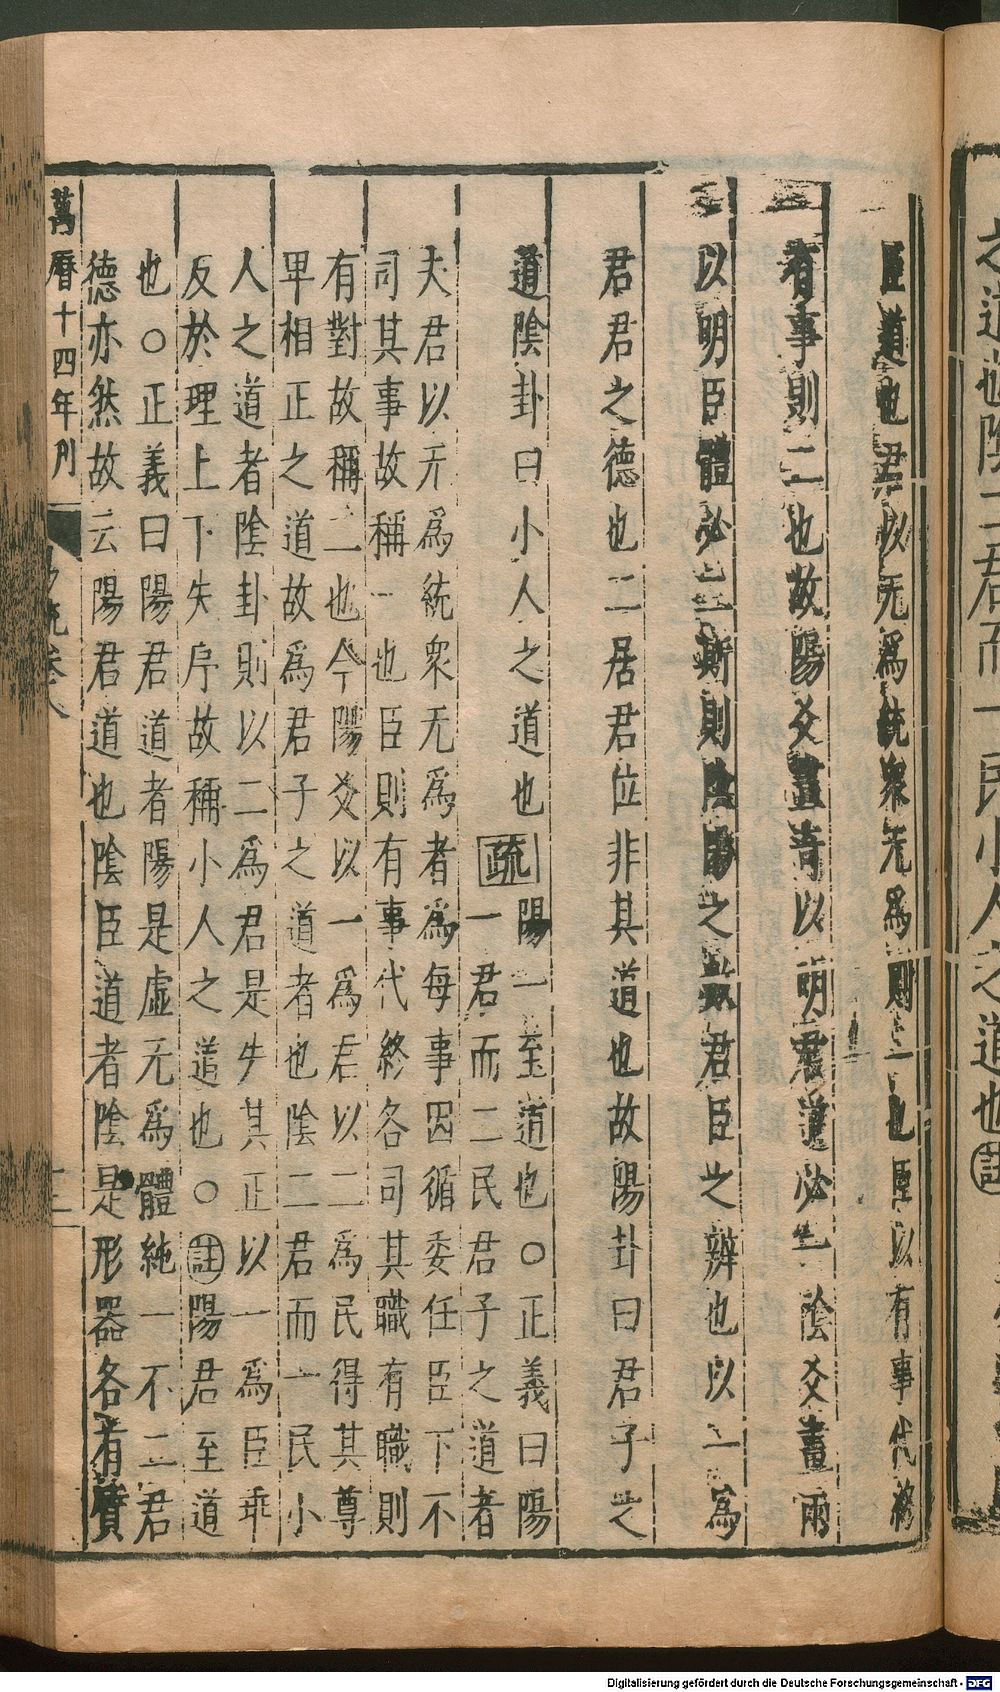 之道也陰二君而一民小人之道也註
臣道也君以无爲統衆无爲則一也臣以有事代終
有事則二也故陽爻畫奇以明君道必一陰爻畫兩
以明臣體必二斯則陰陽之數君臣之辨也以一爲
君君之德也二居君位非其道也故陽卦曰君子之
道陰卦曰小人之道也
疏
陽一至道也○正義曰陽
一君而二民君子之道者
夫君以无爲統衆无爲者爲每事因循委任臣下不
司其事故稱一也臣則有事代終各司其職有職則
有對故稱二也今陽爻以一爲君以二爲民得其尊
卑相正之道故爲君子之道者也陰二君而一民小
人之道者陰卦則以二爲君是失其正以一爲臣乖
反於理上下失序故稱小人之道也○註陽君至道
也○正義曰陽君道者陽是虛无爲體純一不二君
德亦然故云陽君道也陰臣道者陰是形器各有質
萬曆十四年刊
易疏卷八
Digitalisierung gefördert durch die Deutsche Forschungsgemeinschaft - DFG